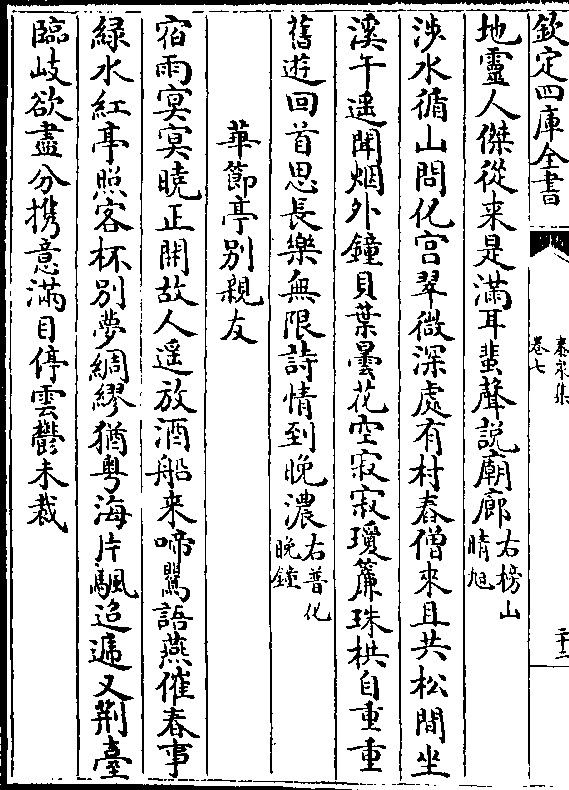 欽定四庫全書
泰泉集
卷七
二十二
地靈人傑從来是滿耳蜚聲說廟廊右榜山晴旭
涉水循山問化宫翠微深處有村舂僧來且共松間坐
溪午遥聞烟外鐘貝葉曇花空寂寂瓊簾珠栱自重重
舊遊回首思長樂無限詩情到晚濃右普化晚鐘
華節亭别親友
宿雨冥冥曉正開故人遥放酒船来啼鶯語燕催春事
緑水紅亭照客杯别夢綢繆猶粤海片颿迢遞又荆臺
臨岐欲盡分携意滿目停雲鬱未裁